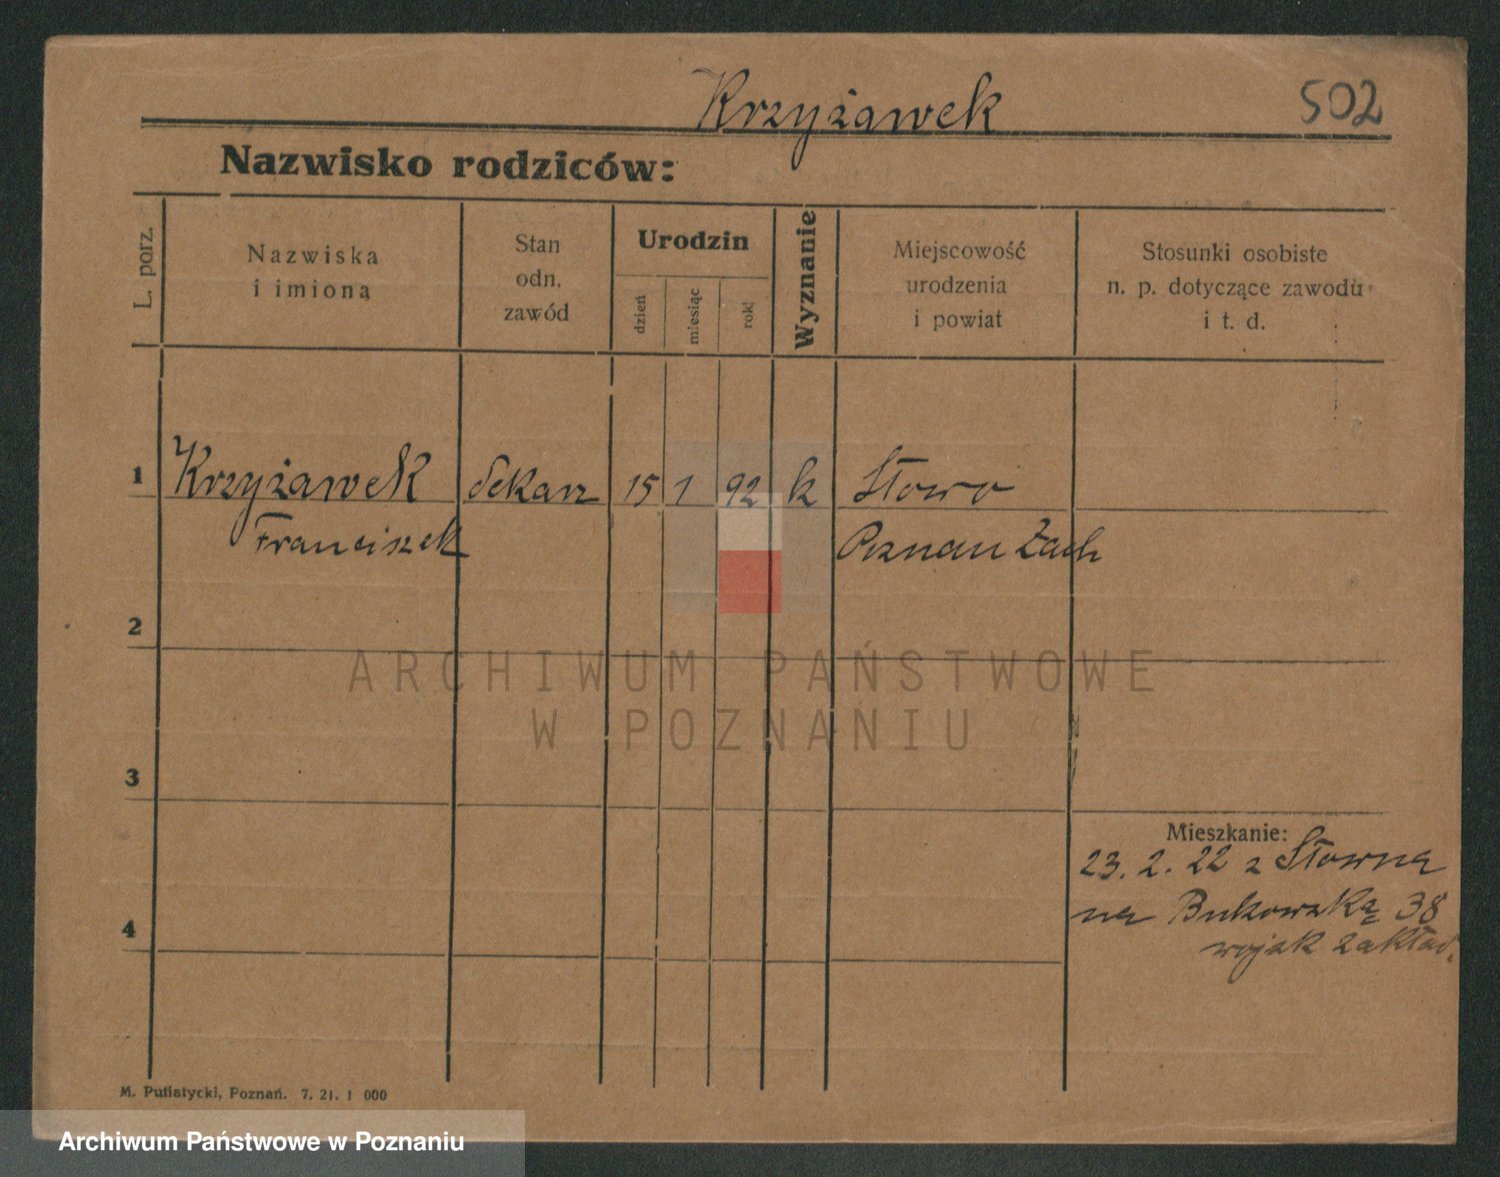 Krzyżawek 502
Nazwisko rodziców:
L. porz.
Nazwiska
i imiona
Stan
odn.
zawód
Urodzin
dzień
miesiąc
rok
Wyznanie
Miejscowość
urodzenia
i powiat
Stosunki osobiste
n. p. dotyczące zawodu
i t. d.
1 Krzyżawek dekarz 15 1 92 k
Franciszek Poznań Zach
2
3
4
Mieszkanie:
23. 2. 22 z
na Bukowską 38
wojsk zakład.
M. Putiatycki, Poznań. 7. 21. 1 000
ARCHIWUM PAŃSTWOWE
W POZNANIU
Archiwum Państwowe w Poznaniu